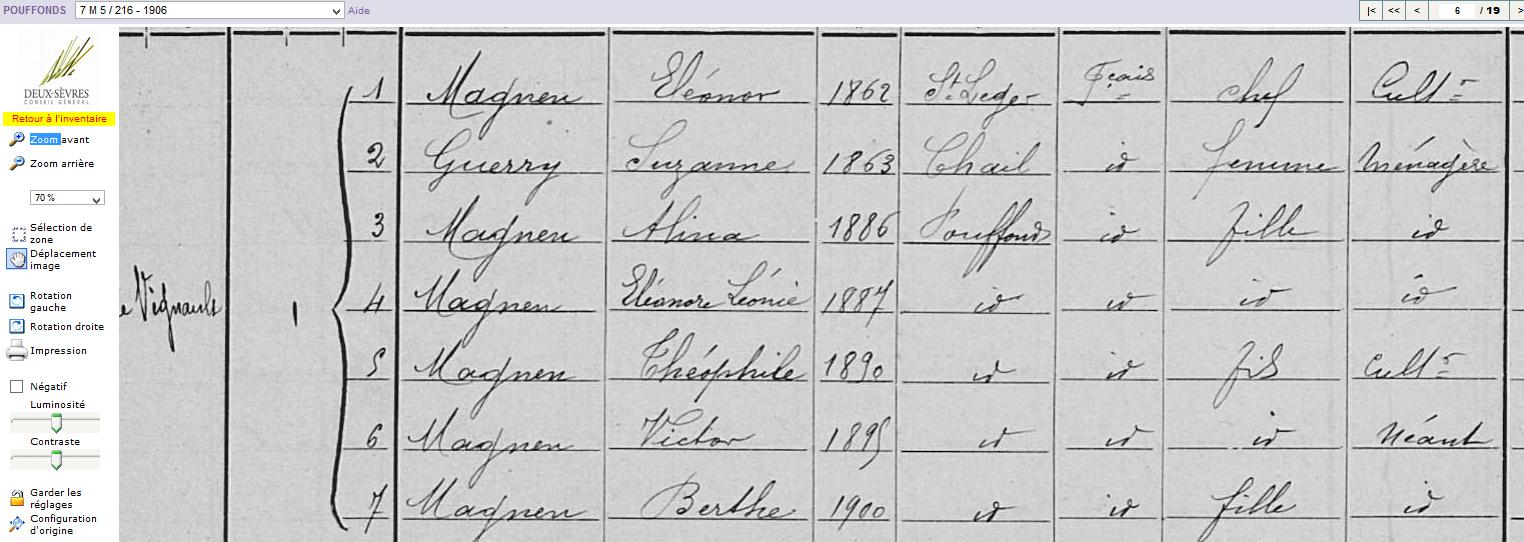 POUFFONDS 7 M 5 / 216 - 1906 Aide |< << < 6 / 19 >
DEUX-SÈVRES
CONSEIL GÉNÉRAL
Retour à l'inventaire
Zoom avant
Zoom arrière
70 %
Sélection de zone
Déplacement image
Rotation gauche
Rotation droite
Impression
Négatif
Luminosité
Contraste
Garder les réglages
Configuration d'origine
e Vignault 1
1 Magnen Eléonor 1862 St Leger Fçais chef Cultr
2 Guerry Suzanne 1863 Chail id femme Ménagère
3 Magnen Alina 1886 Pouffonds id fille id
4 Magnen Eléonore Léonie 1887 id id id id
5 Magnen Théophile 1890 id id fils Cultr
6 Magnen Victor 1895 id id id Néant
7 Magnen Berthe 1900 id id fille id